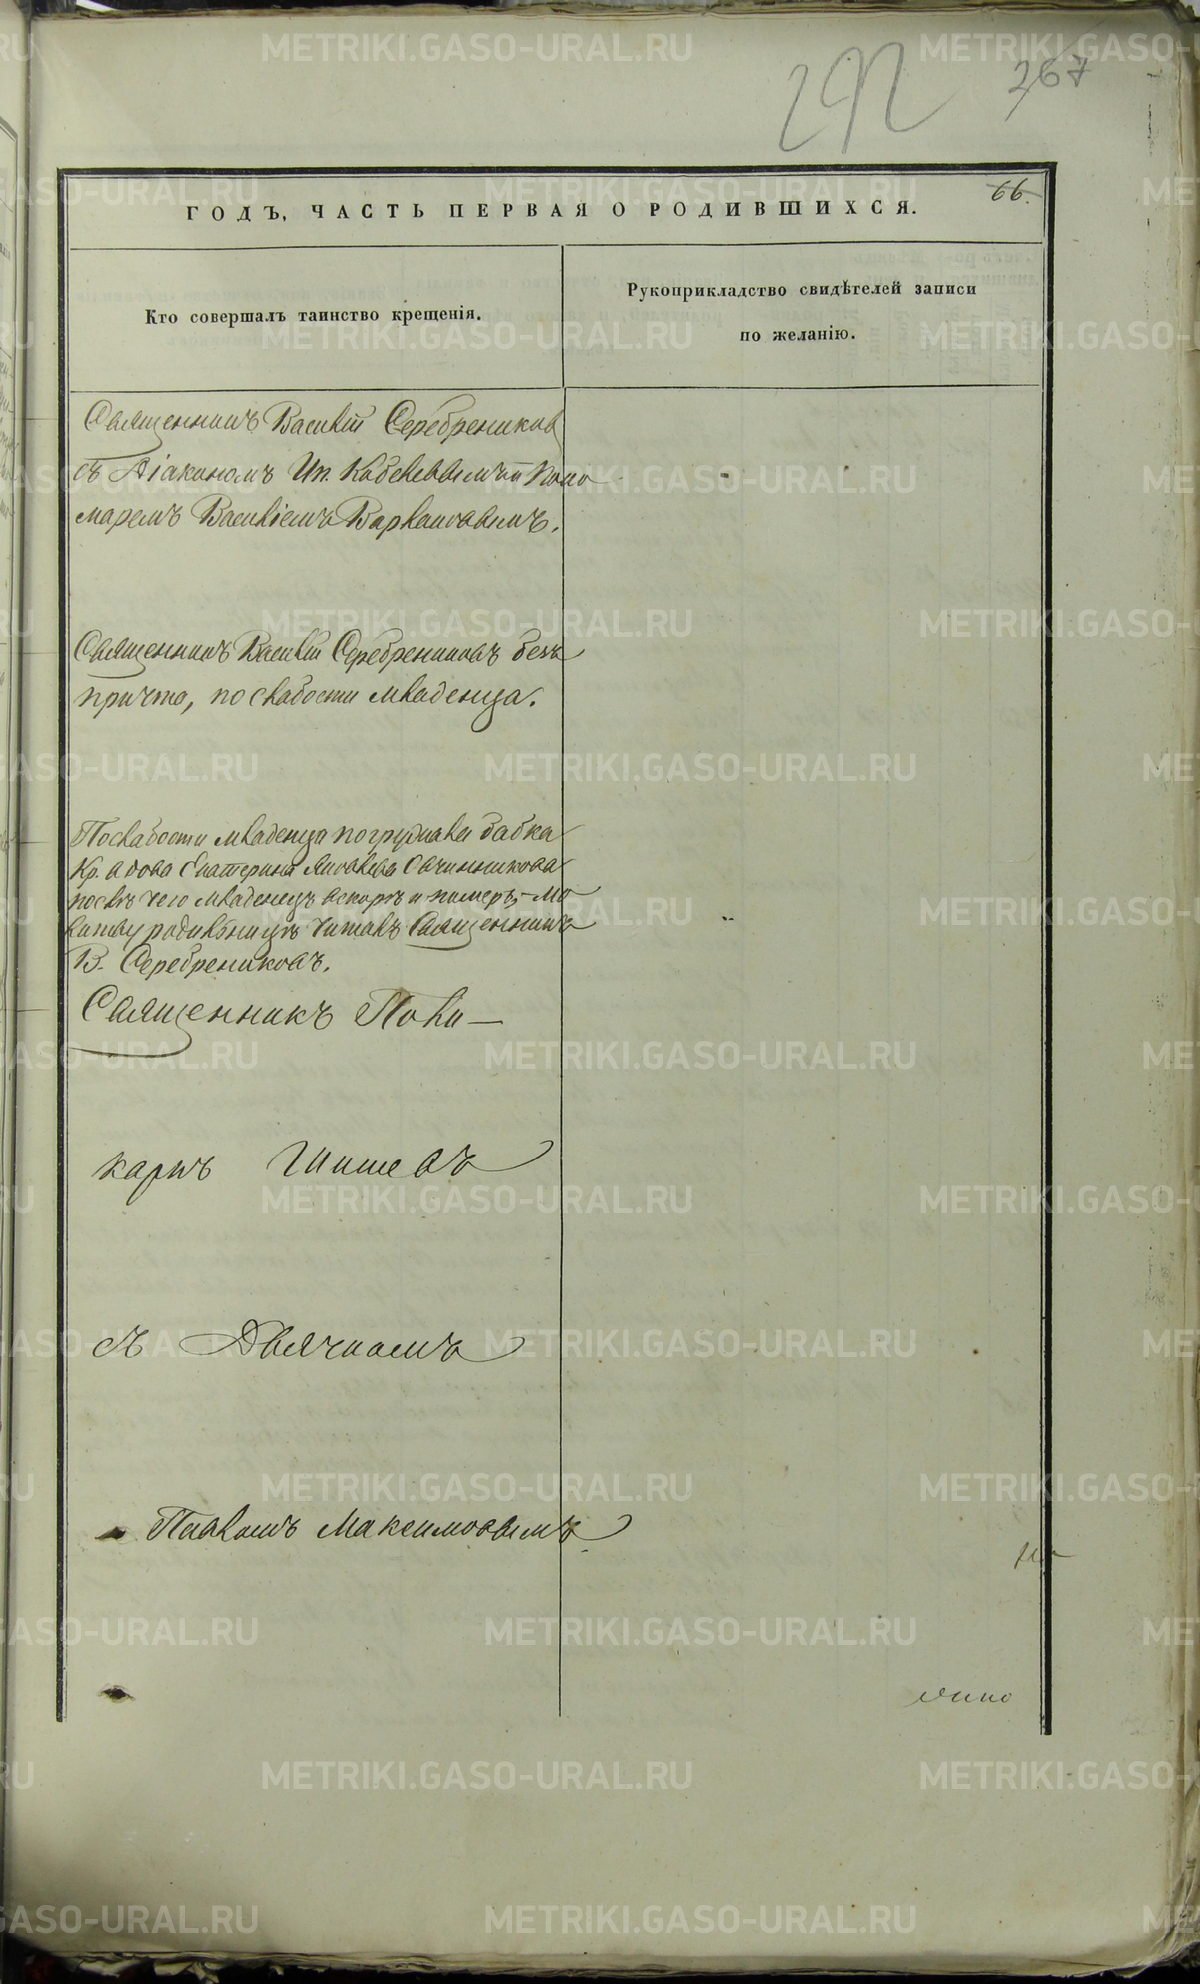 292
267
66.
ГОДЪ, ЧАСТЬ ПЕРВАЯ О РОДИВШИХСЯ.
Кто совершалъ таинство крещенія.
Рукоприкладство свидѣтелей записи
по желанію.
Священникъ Василій Серебрениковъ
съ Діакономъ Ип. и Поно
маремъ Василіемъ Варлаковымъ.
Священникъ Василій Серебрениковъ безъ
причта, по слабости младенца.
По слабости младенца погружала бабка
Кр. вдова Екатерина Яковлева Овчинникова
послѣ чего младенецъ вскорѣ и померъ, – Мо
литву родильницѣ читалъ Священникъ
В. Серебрениковъ.
Священникъ Поли—
карпъ
съ Дьячкомъ
Павломъ Максимовымъ
METRIKI.GASO-URAL.RU